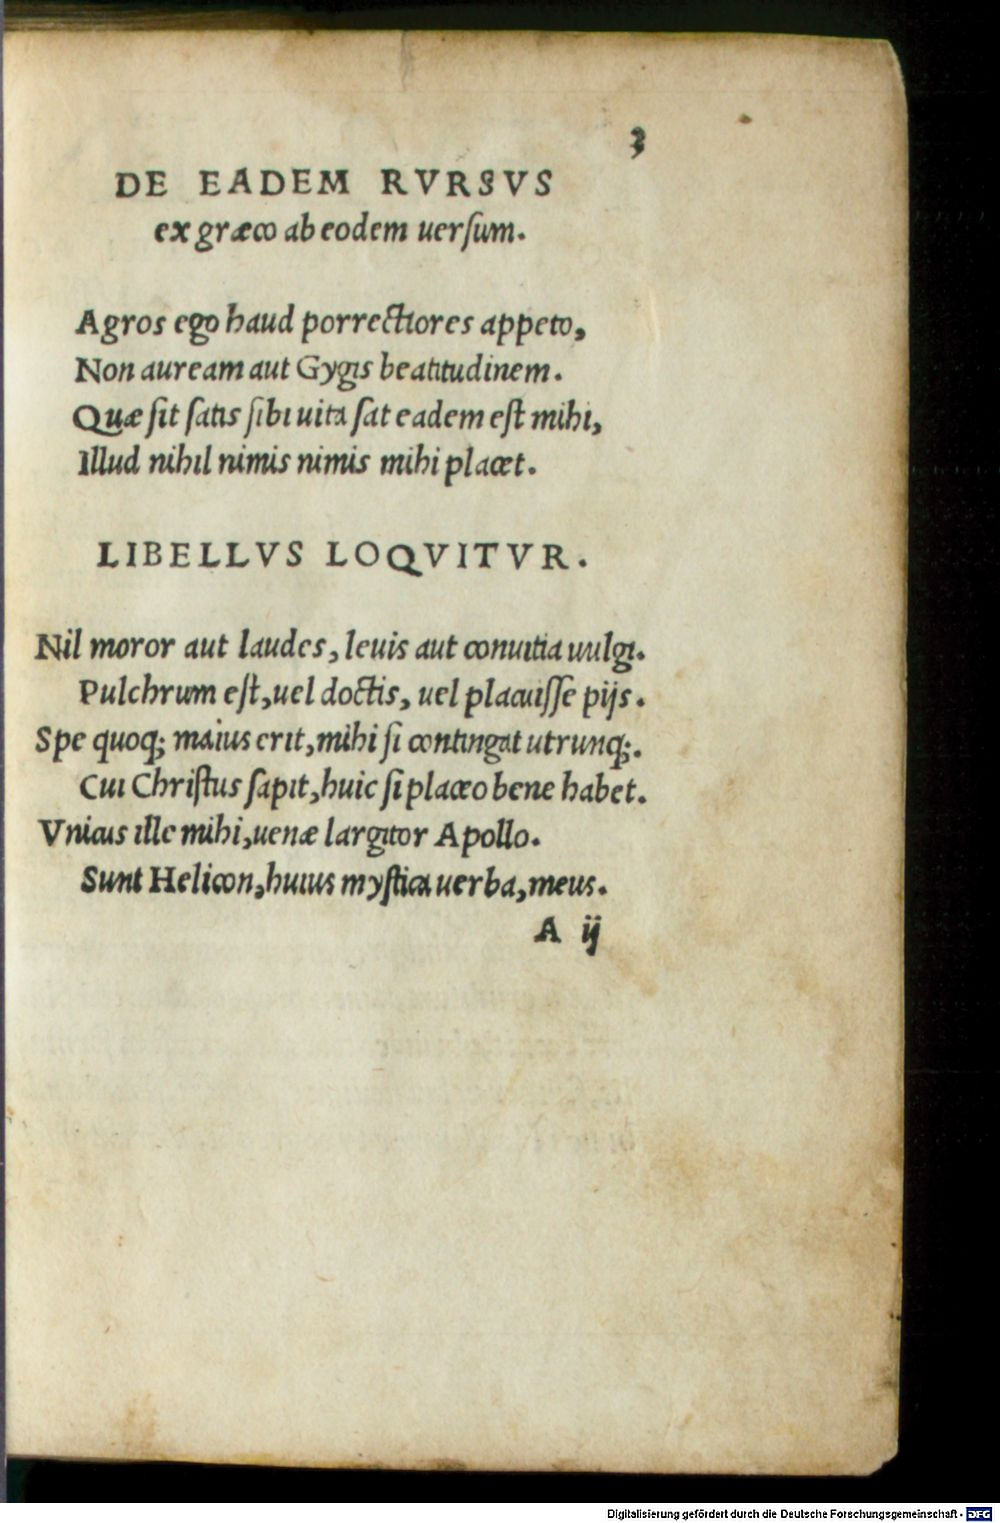 3
DE EADEM RVRSVS
ex græco ab eodem uerſum.
Agros ego haud porrectiores appeto,
Non auream aut Gygis beatitudinem.
Quæ ſit ſatis ſibi uita ſat eadem eſt mihi,
Illud nihil nimis nimis mihi placet.
LIBELLVS LOQVITVR.
Nil moror aut laudes, leuis aut conuitia uulgi.
Pulchrum eſt, uel doctis, uel placuiſſe pijs.
Spe quoq; maius erit, mihi ſi contingat utrunq;.
Cui Chriſtus ſapit, huic ſi placeo bene habet.
Vnicus ille mihi, uenæ largitor Apollo.
Sunt Helicon, huius myſtica uerba, meus.
A ij
Digitalisierung gefördert durch die Deutsche Forschungsgemeinschaft - DFG